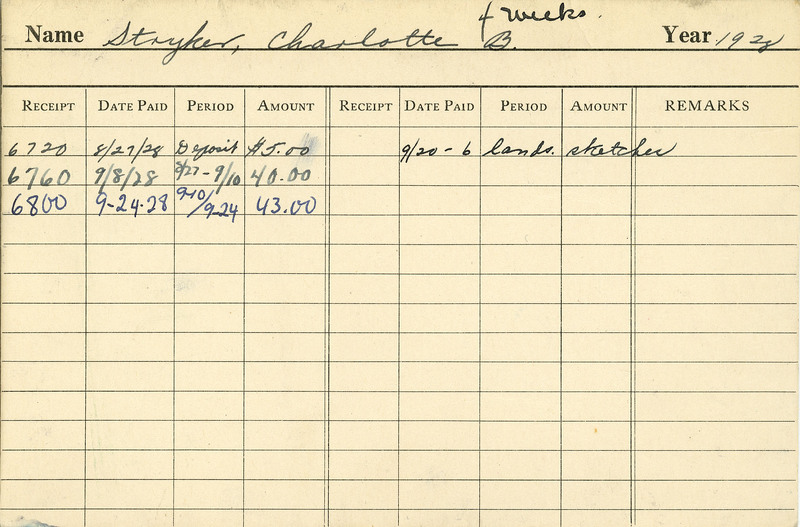 4 Weeks.
Name Stryker, Charlotte B. Year 1928
RECEIPT DATE PAID PERIOD AMOUNT RECEIPT DATE PAID PERIOD AMOUNT REMARKS
6720 8/27/28 Deposit $5.00 9/20 - 6 lands. sketches
6760 9/8/28 8/27 - 9/10 40.00
6800 9-24-28 9-10/9-24 43.00